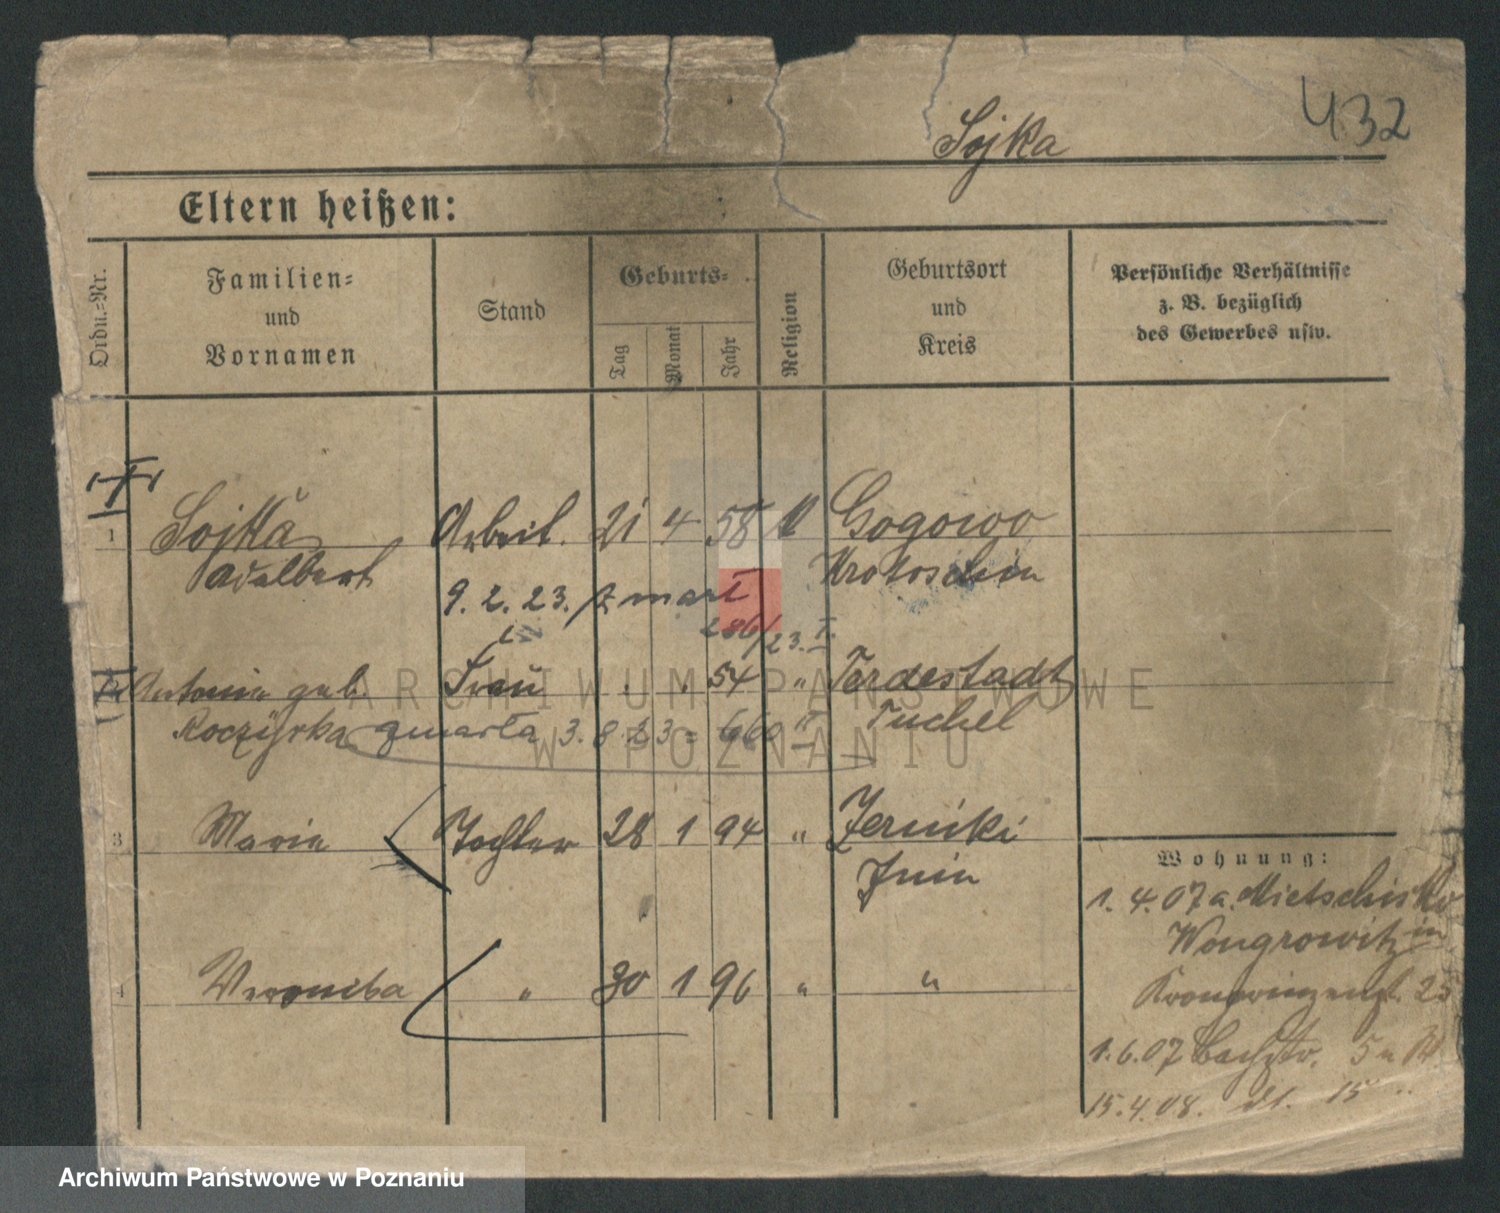 432
Sojka
Eltern heißen:
Ordn.-Nr.
Familien-
und
Vornamen
Stand
Geburts-
Tag
Monat
Jahr
Religion
Geburtsort
und
Kreis
Persönliche Verhältnisse
z. B. bezüglich
des Gewerbes usw.
1 Sojka Arbeit. 21 4 58 Gogowo
Adalbert Krotoschin
9. 2. 23.
286/23. I.
Antonie geb. Frau 54 "
Tuchel
3. 8. 23 = 660
3 Marie Tochter 28 1 94 " Zerniki
Znin
4 Veronika " 30 1 96 " "
Wohnung:
1. 4. 07 a. Mietschisko
Wongrowitz in
Kronprinzenst. 25
1. 6. 07 Bachstr. 5
15. 4. 08. dt. 15
ARCHIWUM PAŃSTWOWE
W POZNANIU
Archiwum Państwowe w Poznaniu